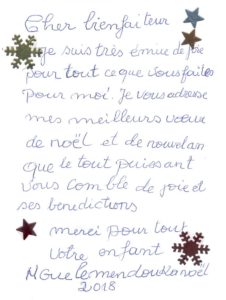 Cher bienfaiteur
je suis très émue de joie
pour tout ce que vous faites
pour moi. Je vous adresse
mes meilleurs vœux
de noël et de nouvel an
que le tout puissant
vous comble de joie et
ses benedictions
merci pour tout
votre enfant
noël
2018